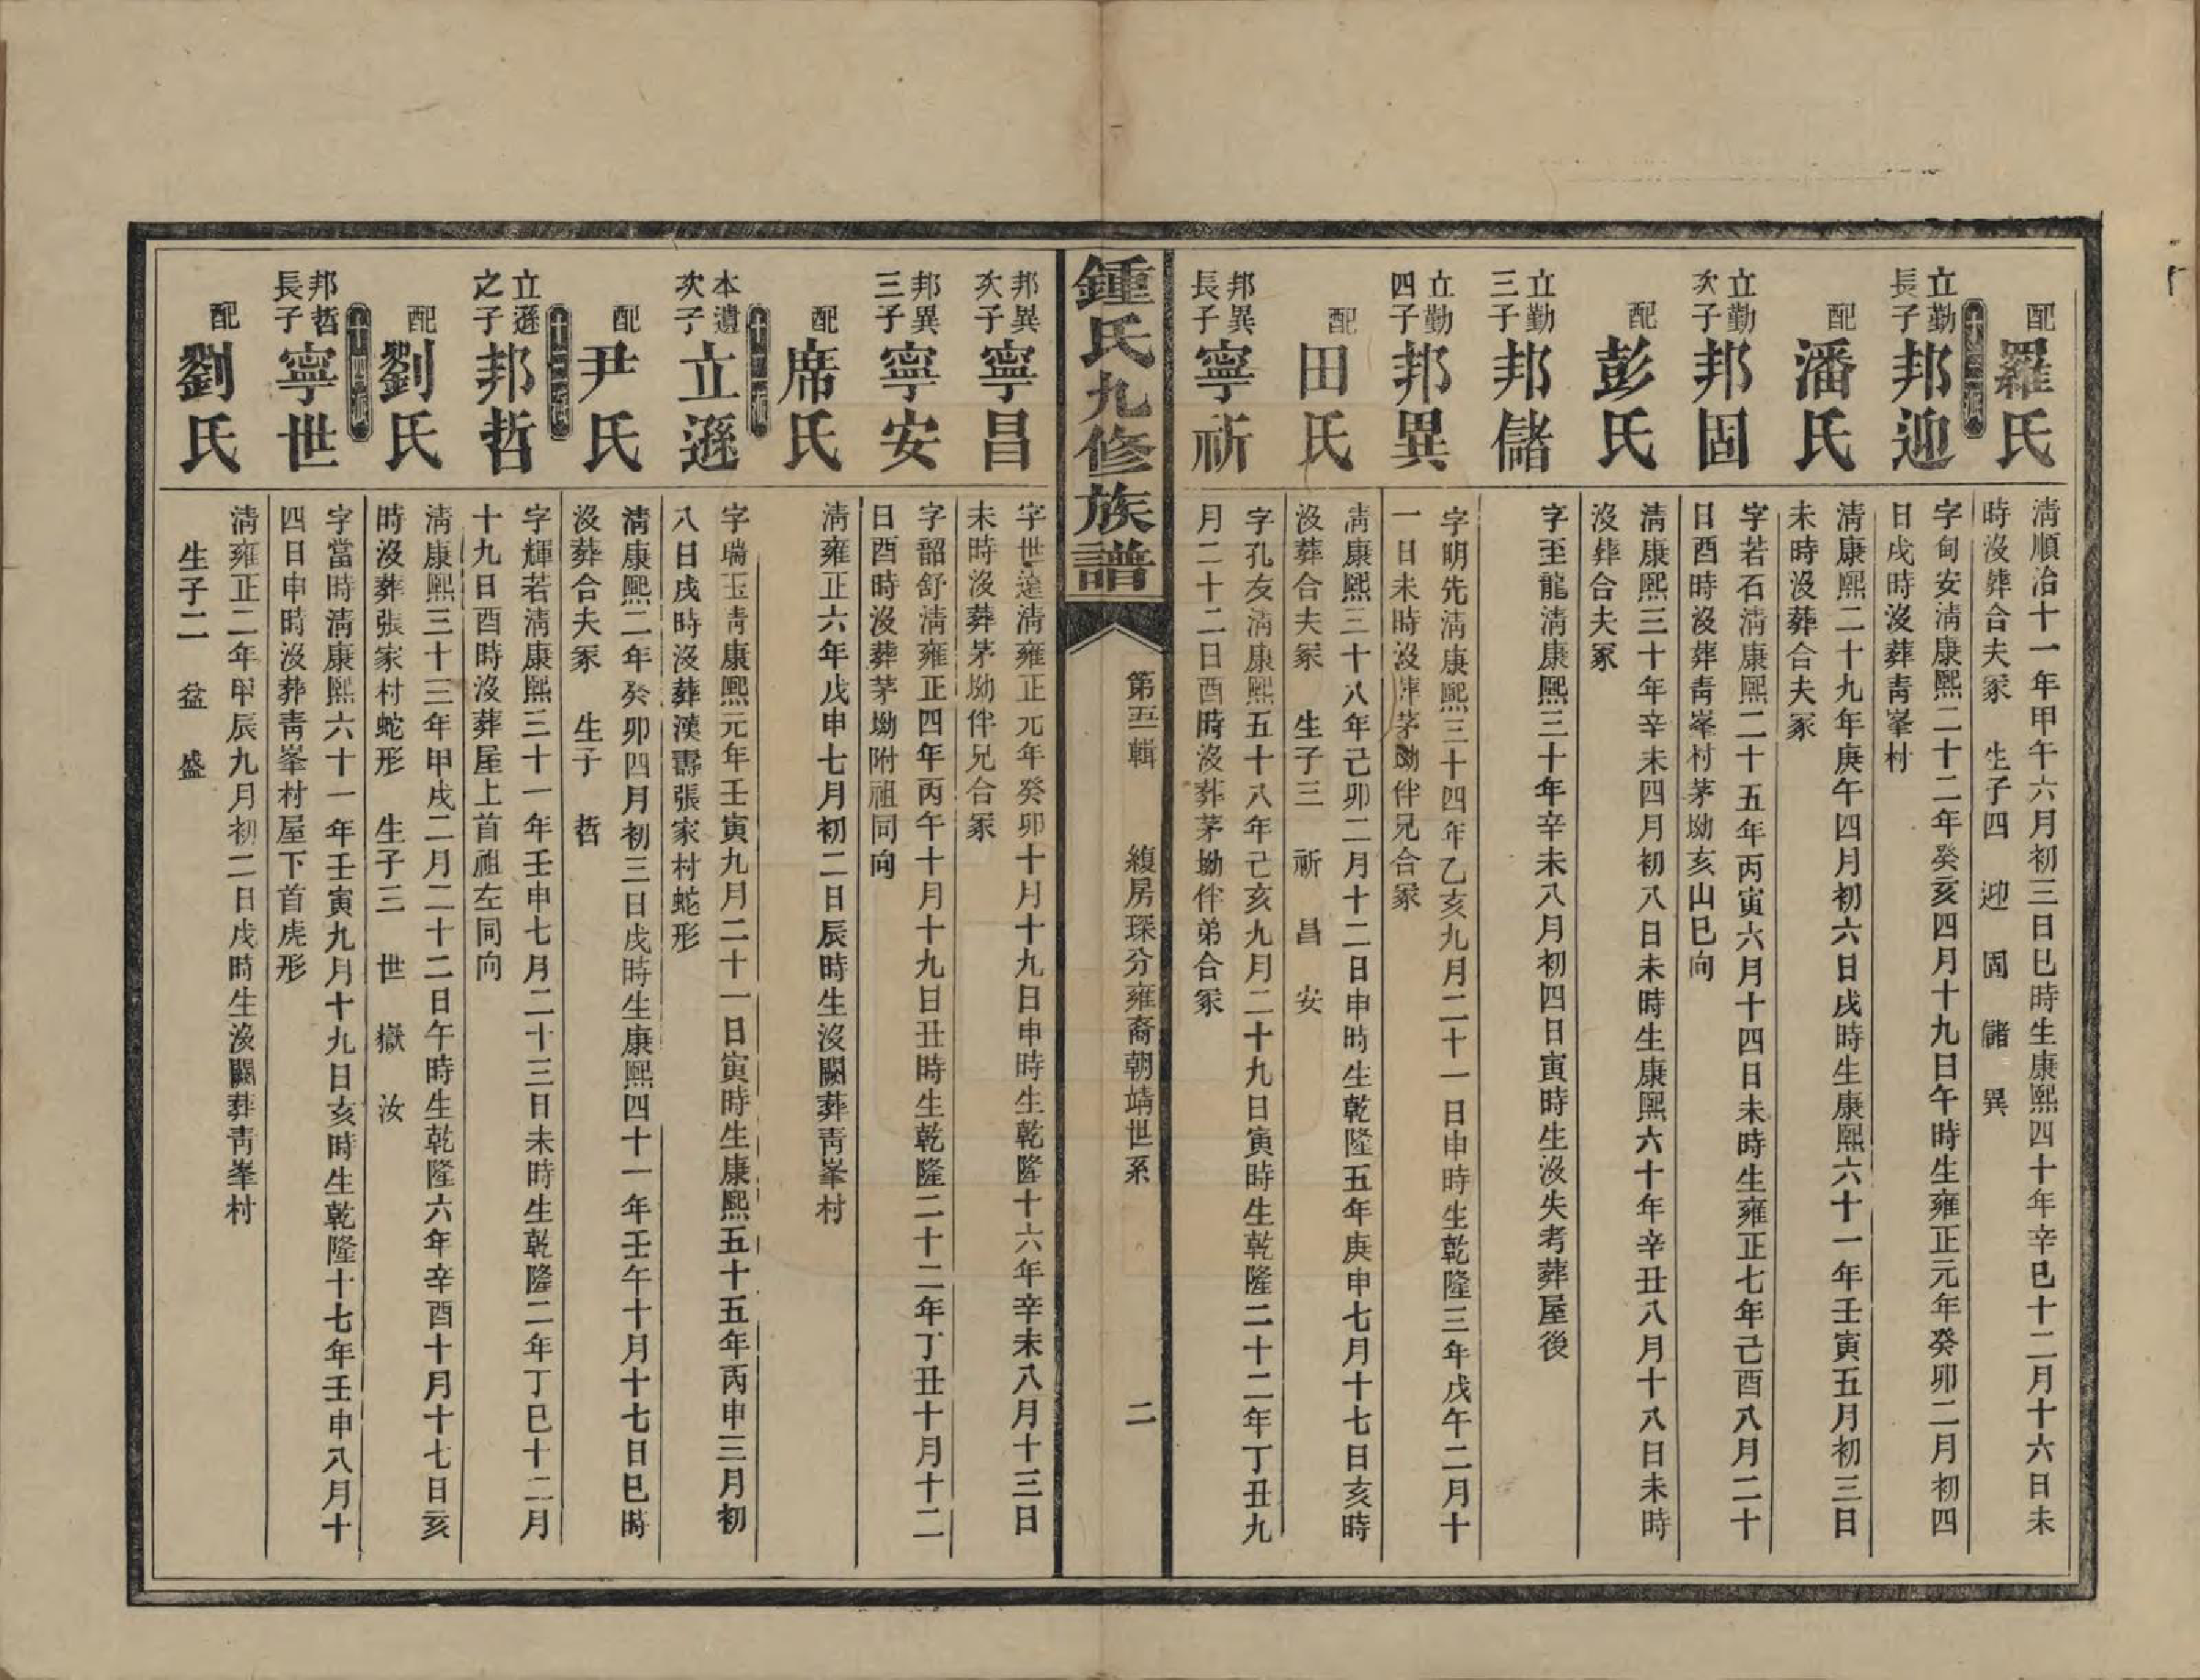 配
羅氏
清順治十一年甲午六月初三日巳時生康熙四十年辛巳十二月十六日未
時沒葬合夫冢　生子四　迎　固　儲　異
十三派
立勤
長子
邦迎
字甸安清康熙二十二年癸亥四月十九日午時生雍正元年癸卯二月初四
日戌時沒葬青峯村
配
潘氏
清康熙二十九年庚午四月初六日戌時生康熙六十一年壬寅五月初三日
未時沒葬合夫冢
立勤
次子
邦固
字若石清康熙二十五年丙寅六月十四日未時生雍正七年己酉八月二十
日酉時沒葬青峯村茅坳亥山巳向
配
彭氏
清康熙三十年辛未四月初八日未時生康熙六十年辛丑八月十八日未時
沒葬合夫冢
立勤
三子
邦儲
字至龍清康熙三十年辛未八月初四日寅時生沒失考葬屋後
立勤
四子
邦異
字明先清康熙三十四年乙亥九月二十一日申時生乾隆三年戊午二月十
一日未時沒葬茅坳伴兄合冢
配
田氏
清康熙三十八年己卯二月十二日申時生乾隆五年庚申七月十七日亥時
沒葬合夫冢　生子三　祈　昌　安
邦異
長子
寧祈
字孔友清康熙五十八年己亥九月二十九日寅時生乾隆二十二年丁丑九
月二十二日酉時沒葬茅坳伴弟合冢
鍾氏九修族譜
第五輯　緮房琛分雍裔朝靖世系　二
邦異
次子
寧昌
字世達清雍正元年癸卯十月十九日申時生乾隆十六年辛未八月十三日
未時沒葬茅坳伴兄合冢
邦異
三子
寧安
字韶舒清雍正四年丙午十月十九日丑時生乾隆二十二年丁丑十月十二
日酉時沒葬茅坳附祖同向
配
席氏
清雍正六年戊申七月初二日辰時生沒闕葬青峯村
十二派
本遺
次子
立遜
字瑞玉清康熙元年壬寅九月二十一日寅時生康熙五十五年丙申三月初
八日戌時沒葬漢壽張家村蛇形
配
尹氏
清康熙二年癸卯四月初三日戌時生康熙四十一年壬午十月十七日巳時
沒葬合夫冢　生子　哲
十三派
立遜
之子
邦哲
字輝若清康熙三十一年壬申七月二十三日未時生乾隆二年丁巳十二月
十九日酉時沒葬屋上首祖左同向
配
劉氏
清康熙三十三年甲戌二月二十二日午時生乾隆六年辛酉十月十七日亥
時沒葬張家村蛇形　生子三　世　嶽　汝
十四派
邦哲
長子
寧世
字當時清康熙六十一年壬寅九月十九日亥時生乾隆十七年壬申八月十
四日申時沒葬青峯村屋下首虎形
配
劉氏
清雍正二年甲辰九月初二日戌時生沒闕葬青峯村
生子二　益　盛